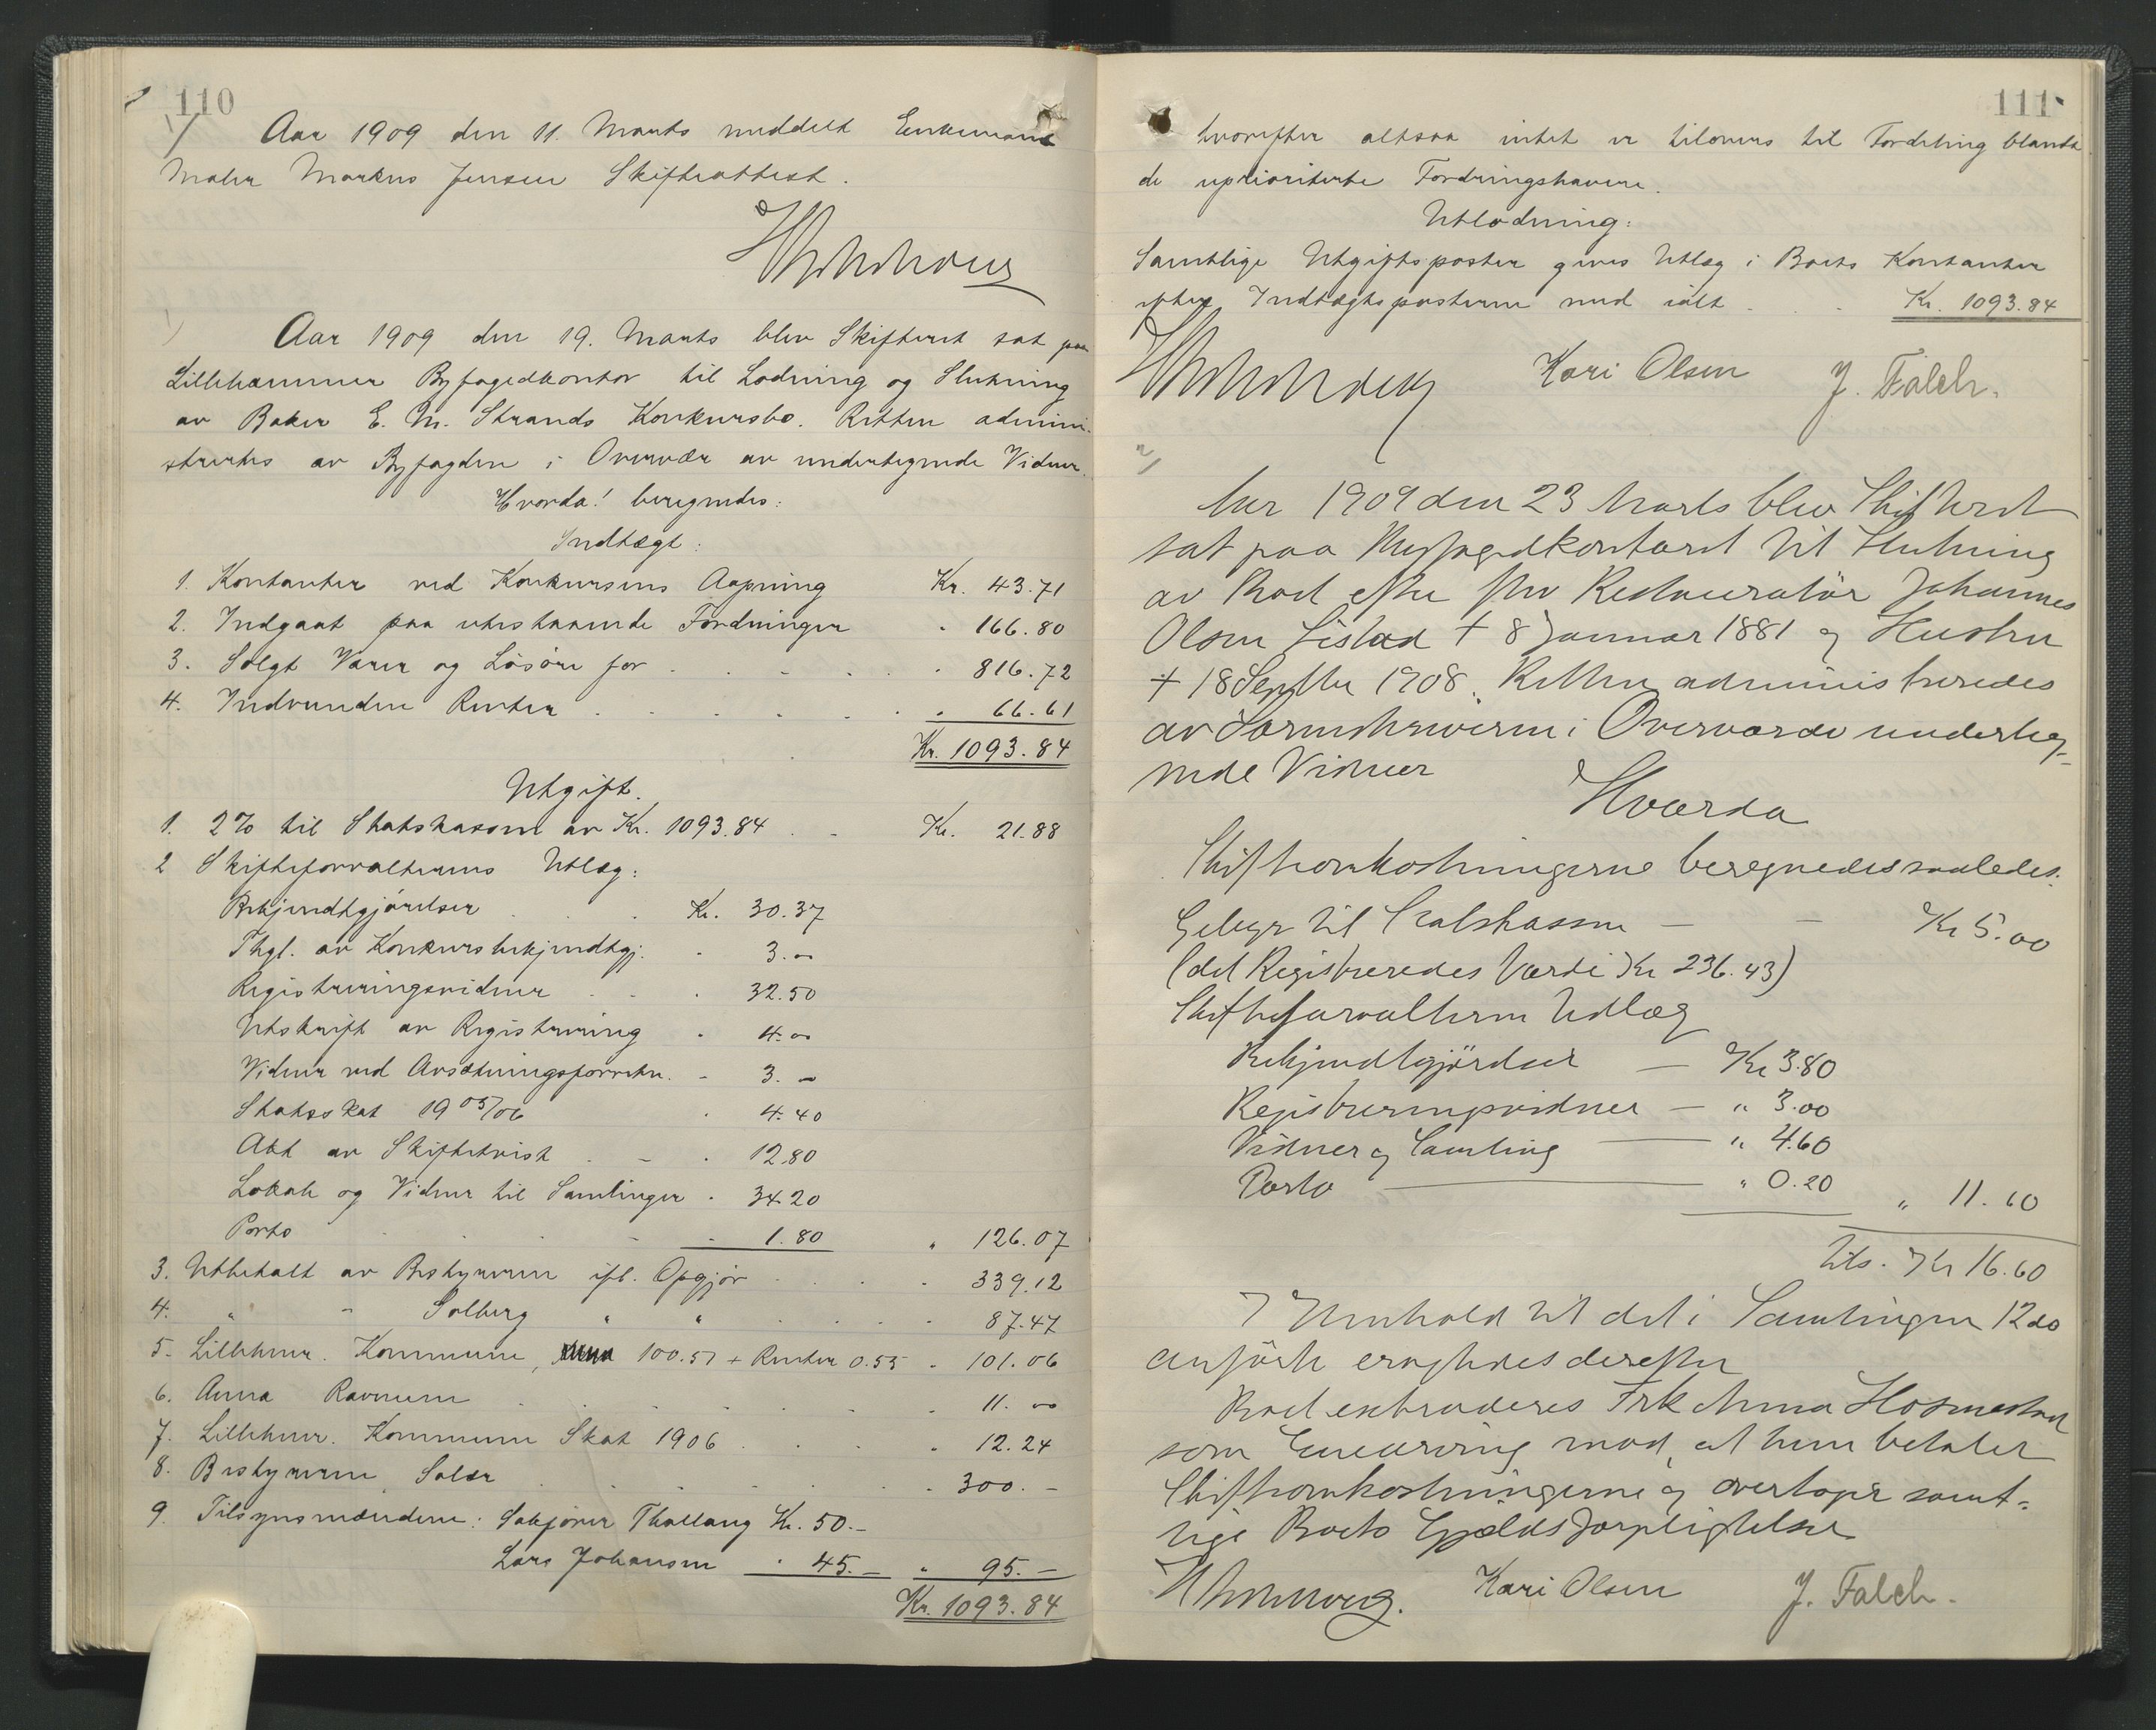 110
Aar 1909 den 11. Marts meddelt Enkemand
Maler Markus Jensen Skifteattest.
Aar 1909 den 19. Marts blev Skifteret sat paa
Lillehammer Byfogedkontor til Lodning og Slutning
av Baker E. M. Strands Konkursbo. Retten admini-
strertes av Byfogden i Overvær av undertegnede Vidner.
Hvorda! beregnedes:
Indtægt:
1. Kontanter ved Konkursens Aapning Kr. 43.71
2. Indgaat paa utestaaende Fordringer " 166.80
3. Solgt Varer og Løsøre for . . . . . " 816.72
4. Indvundne Renter . . . . . " 66.61
Kr. 1093.84
Utgift.
1. 2% til Statskassen av Kr. 1093.84 . . Kr. 21.88
2 Skifteforvalterens Utlæg:
Bekjendtgjørelser . . . Kr. 30.37
Thgl. av Konkursbekjendtgj. " 3.00
Registreringsvidner . . " 32.50
Utskrift av Registrering " 4.00
Vidner ved Avsætningsforretn. " 3. -
Statsskat 1905/06 " 4.40
Akt av Skiftetvist . . " 12.80
Lokale og Vidner til Samlinger " 34.20
Porto . . . . " 1.80 " 126.07
3. Utbetalt av Bestyreren ifl. Opgjør . . . . " 339.12
4. " " Solberg " " . . . . " 87.47
5. Lillehmr. Kommune, 100.51 + Renter 0.55 " 101.06
6. Anna Ravnum . . . . . . " 11.00
7. Lillehmr. Kommune Skat 1906 . . . . " 12.24
8. Bestyreren, Salær . . . . . . " 300. -
9. Tilsynsmændene: Sakfører Thallaug Kr. 50.-
Lars Johansen " 45.- " 95.-
Kr. 1093.84
111
hvorefter altsaa intet er tilovers til Fordeling blandt
de uprioriterte Fordringshavere.
Utlodning:
Samtlige Utgiftsposter gives Utlæg i Boets Kontanter
efter Indtægtsposterne med ialt . . . Kr. 1093.84
Kari Olsen J. Falch.
2/
Aar 1909 den 23 Marts blev Skifteret
sat paa Byfogedkontoret til Slutning
av Boet efter fhv Restauratør Johannes
Olsen Listad † 8 Januar 1881 og Hustru
† 18 Septbr 1908. Retten administreredes
av Sorenskriveren i Overværd av underteg-
nede Vidner
Hvorda
Skifteomkostningerne beregnedes saaledes:
Gebyr til Statskassen — — Kr 5.00
(det Registreredes Værdi Kr 236.43)
Skifteforvalteren Udlæg
Bekjendtgjørelser — Kr 3.80
Registreringsvidner — " 3.00
Vidner og Samling — " 4.60
Porto — " 0.20 " 11.60
Tils. Kr 16.60
I Henhold til det i Samlingen 12 ds
anførte eragtedes derefter
Boet extraderes Frk Anna
som Enearving mod, at hun betaler
Skifteomkostningerne og overtager samt-
lige Boets Gjældsforpligtelser
Kari Olsen J. Falch.